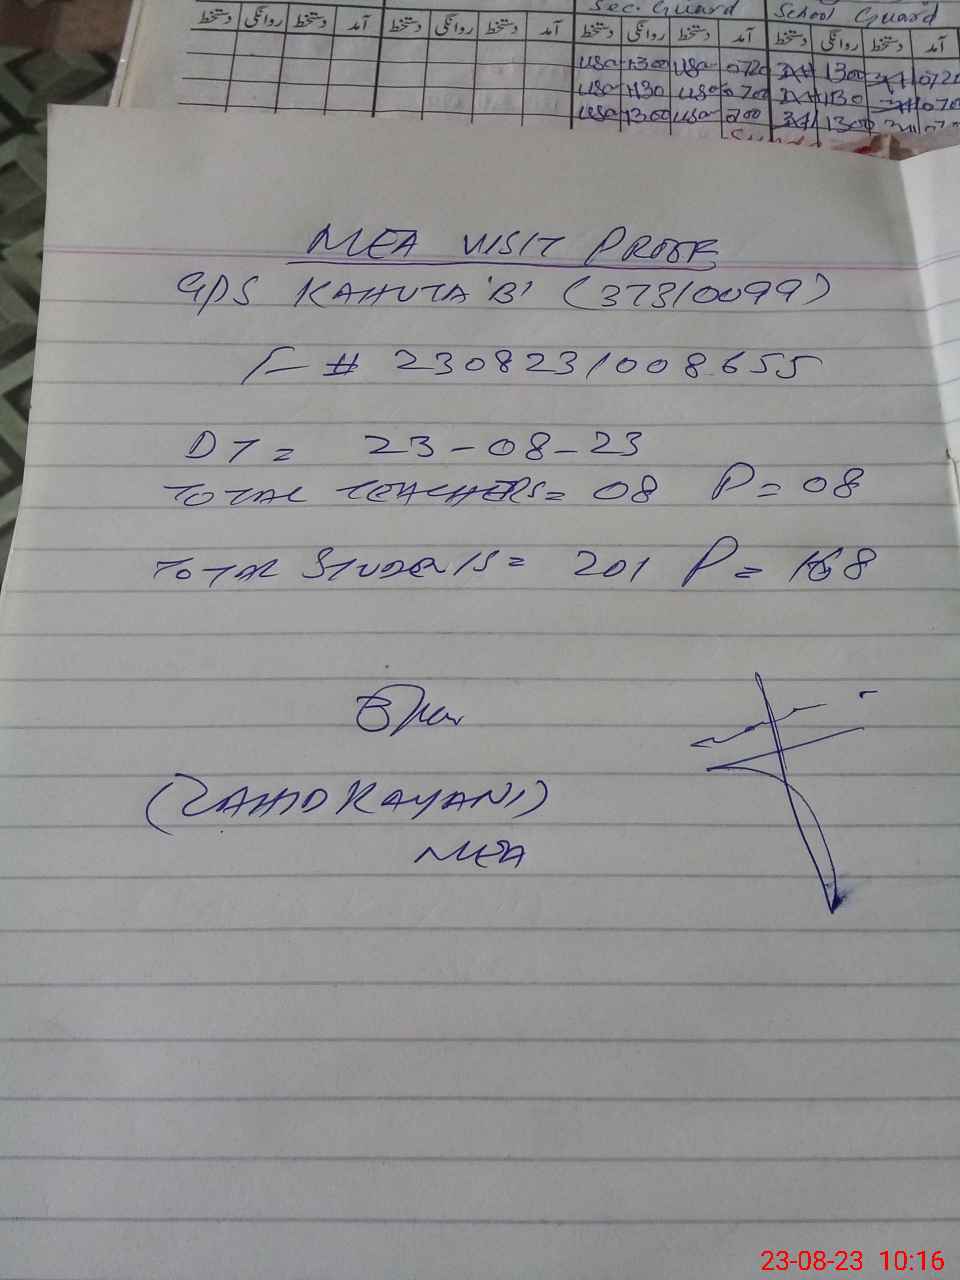 Sec. Guard School Guard
دستخط روانگی دستخط آمد دستخط روانگی دستخط آمد دستخط روانگی دستخط آمد دستخط روانگی دستخط آمد
1300 0720 1300 0720
1130 0700 1130
1300 0700 1300
MEA VISIT PROOF
GPS KAHUTA 'B' (37310099)
F # 2308231008655
DT = 23-08-23
TOTAL TEACHERS = 08 P = 08
TOTAL STUDENTS = 201 P = 168
(ZAHID KAYANI)
MEA
23-08-23 10:16